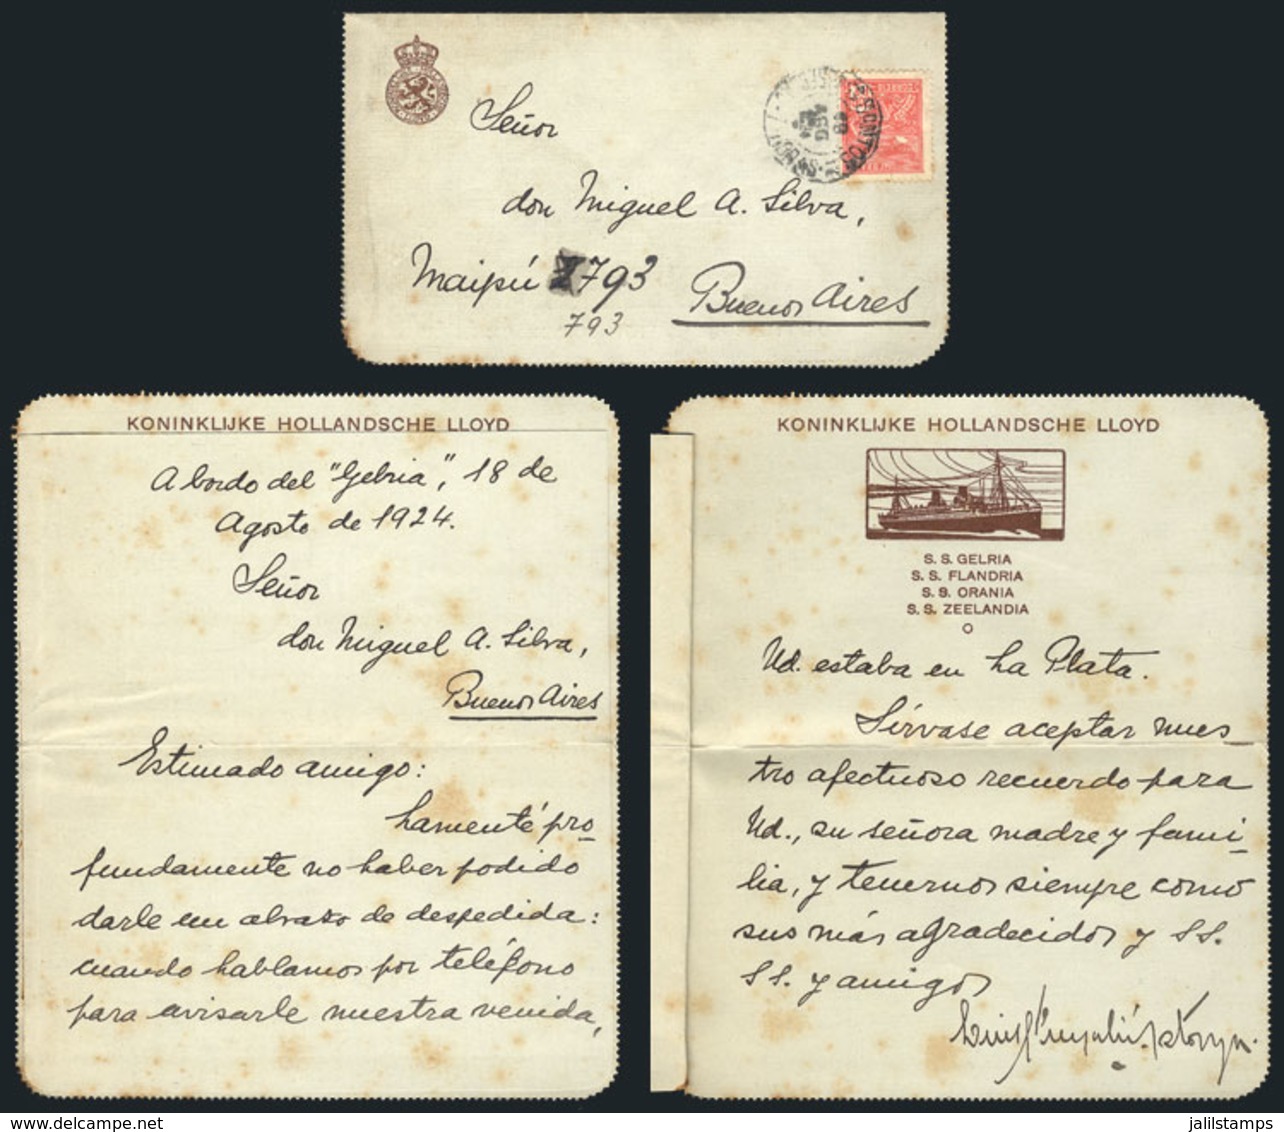 Señor
don Miguel A. Silva,
Maipú 793
793
Buenos Aires
KONINKLIJKE HOLLANDSCHE LLOYD
A bordo del "Gelria", 18 de
Agosto de 1924.
Señor
don Miguel A. Silva,
Buenos Aires
Estimado amigo:
Lamenté pro
fundamente no haber podido
darle un abrazo de despedida:
cuando hablamos por teléfono
para avisarle nuestra venida,
KONINKLIJKE HOLLANDSCHE LLOYD
S. S. GELRIA
S. S. FLANDRIA
S. S. ORANIA
S. S. ZEELANDIA
Ud. estaba en La Plata.
Sírvase aceptar nues
tro afectuoso recuerdo para
Ud., su señora madre y fami-
lia, y tenernos siempre como
sus más agradecidos y SS.
SS. y amigos
jalilstamps@jalilstamps.com